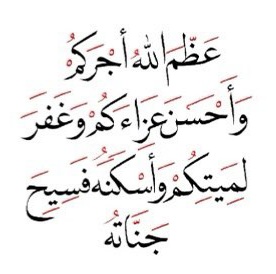 عَظَّمَ اللهُ أَجْرَكُمْ
وَأَحْسَنَ عَزَاءَكُمْ وَغَفَرَ
لِمَيِّتِكُمْ وَأَسْكَنَهُ فَسِيحَ
جَنَّاتِهُ